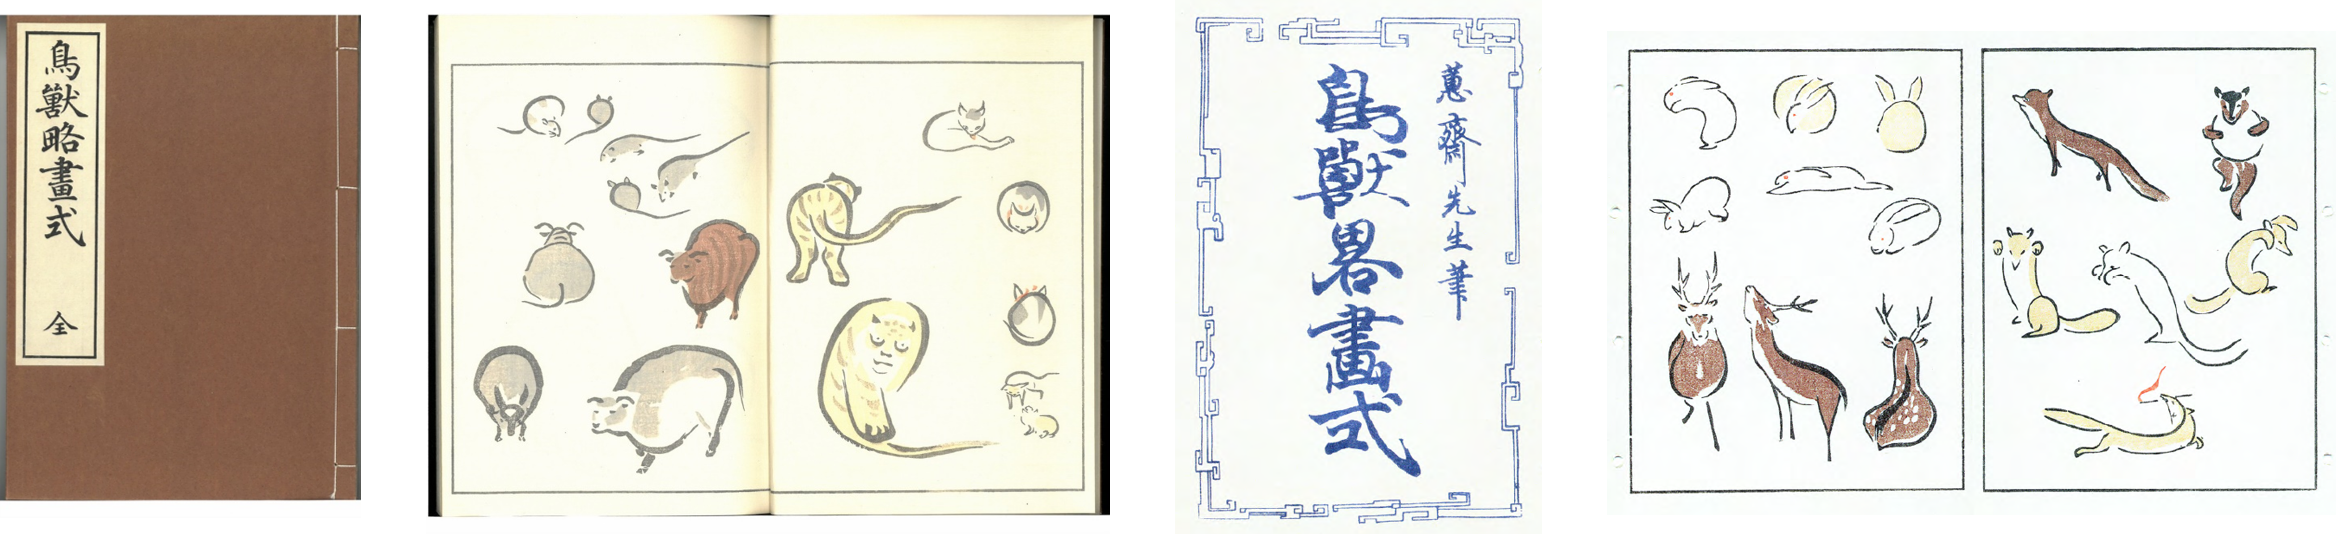 鳥獣略畫式
全
蕙齋先生筆
鳥獸畧畫式